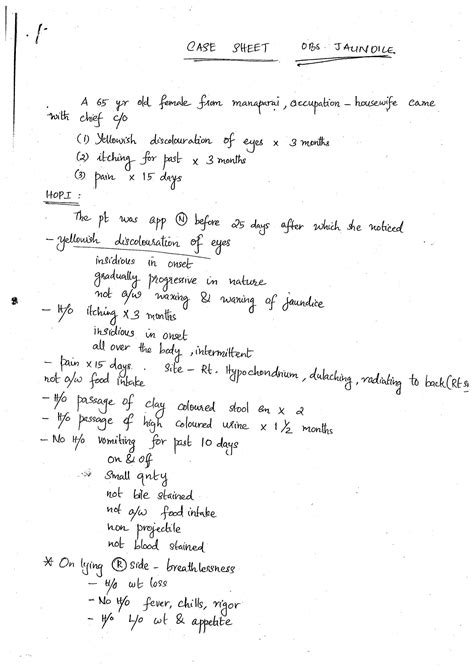 CASE SHEET OBS. JAUNDICE
A 65 yr old female from manaparai, occupation - housewife came
with chief c/o
(1) Yellowish discolouration of eyes x 3 months
(2) itching for past x 3 months
(3) pain x 15 days
HOPI :
The pt was app N before 25 days after which she noticed
- yellowish discolouration of eyes
insidious in onset
gradually progressive in nature
not a/w waxing & waning of jaundice
- H/o itching x 3 months
insidious in onset
all over the body, intermittent
- pain x 15 days. Site - Rt. Hypochondrium, dulaching, radiating to back (Rt
not a/w food intake
- H/o passage of clay coloured stool x 2
- H/o passage of high coloured urine x 1 1/2 months
- No H/o vomiting for past 10 days
on & off
small qnty
not bile stained
not a/w food intake
non projectile
not blood stained
* On lying R side - breathlessness
- H/o wt loss
- No H/o fever, chills, rigor
- H/o L/o wt & appetite